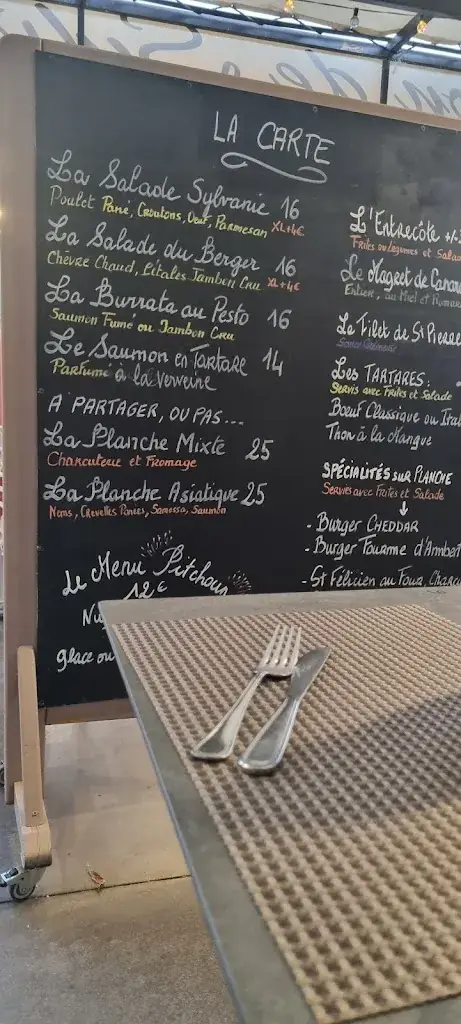 LA CARTE
La Salade Sylvanie 16
Poulet Pané, Croutons, Oeuf, Parmesan XL+4€
La Salade du Berger 16
Chèvre Chaud, Pétales Jambon Cru XL+4€
La Burrata au Pesto 16
Saumon Fumé ou Jambon Cru
Le Saumon en TARTARE 14
Parfumé à la verveine
A PARTAGER, OU PAS...
La Planche Mixte 25
Charcuterie et Fromage
La Planche Asiatique 25
Nems, Crevettes Panées, Samossa, Saumon
Le Menu Pitchoun
12€
glace ou
L'Entrecôte
Frites ou Légumes et
Le Magret de
Entier, au Miel et
Le Filet de St Pierre
Les TARTARES:
Servis avec Frites et Salade
Bœuf Classique ou
Thon à la Mangue
SPÉCIALITÉS SUR PLANCHE
Servies avec Frites et Salade
- Burger CHEDDAR
- Burger Fourme d'Ambert
- St Félicien au Four,